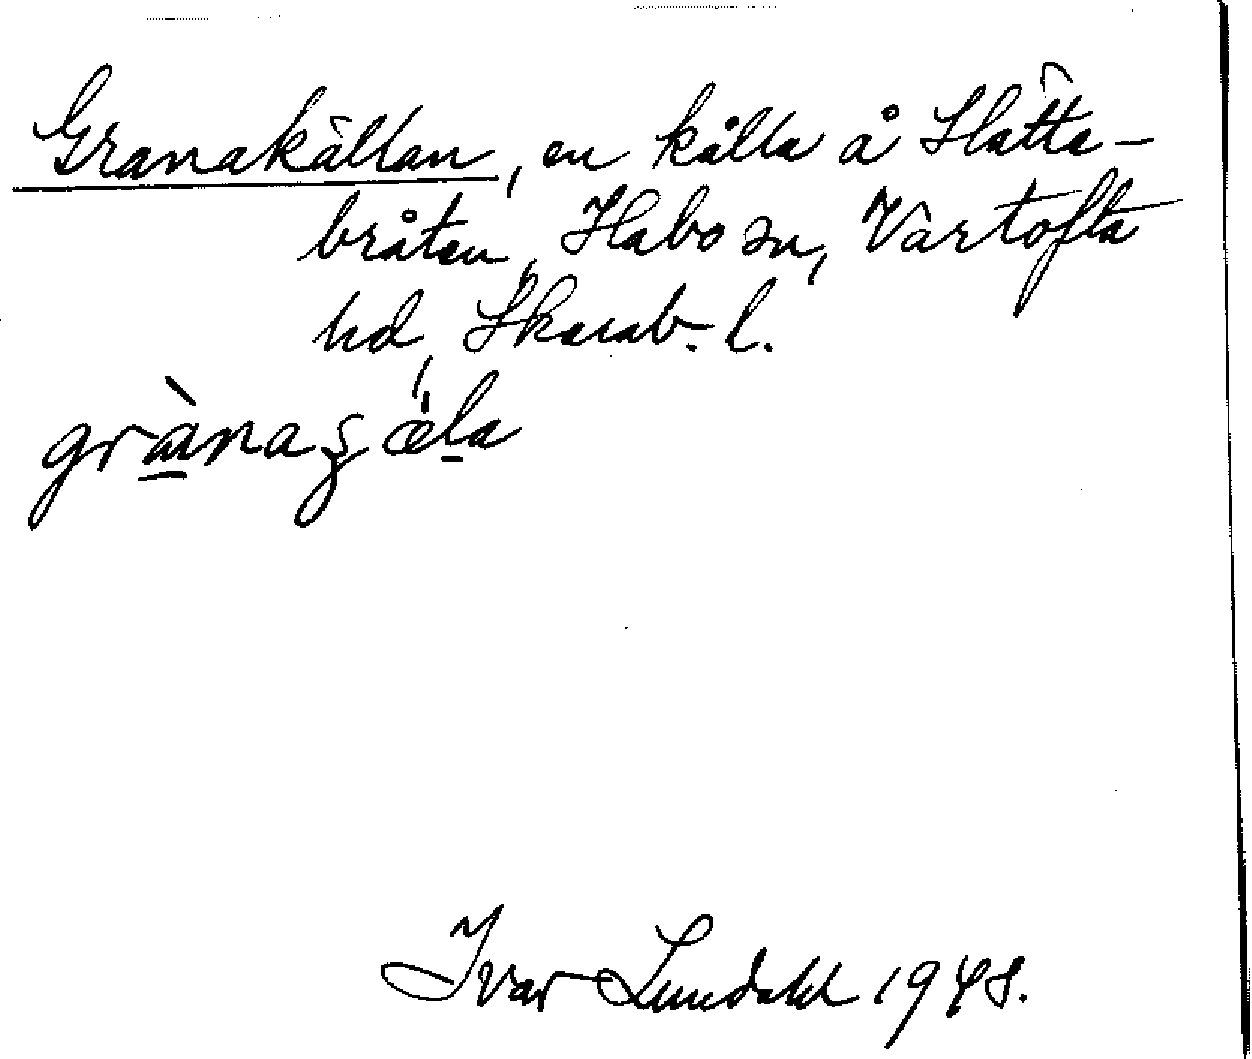 Granakällan, en källa å Slätte-
bråten, Habo sn, Vartofta
hd, Skarab. l.
grànaʂæ̀la
Ivar Lundahl 1948.